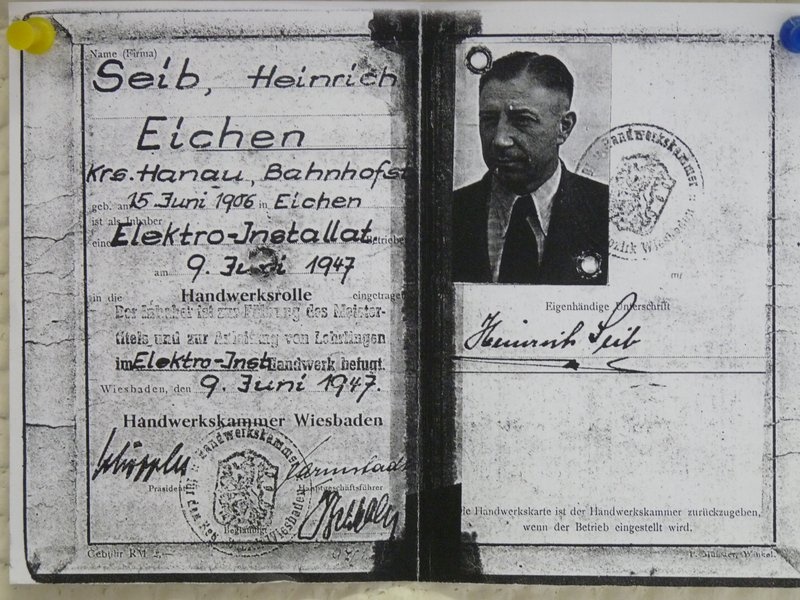 Name (Firma)
Seib, Heinrich
Eichen
Krs. Hanau, Bahnhofst
geb. am 15. Juni 1906 in Eichen
ist als Inhaber
eine Elektro-Installat. Betriebe
am 9. Juni 1947
in die Handwerksrolle eingetrage
Der Inhaber ist zur Führung des Meister-
titels und zur Anleitung von Lehrlingen
im Elektro-Inst Handwerk befugt.
Wiesbaden, den 9. Juni 1947.
Handwerkskammer Wiesbaden
Präsident
Hauptgeschäftsführer
Beglaubigt
Handwerkskammer
Wiesbaden
Gebühr RM 2,—
Handwerkskammer
Bezirk Wiesbaden
Eigenhändige Unterschrift
Heinrich Seib
Handwerkskarte ist der Handwerkskammer zurückzugeben,
wenn der Betrieb eingestellt wird.